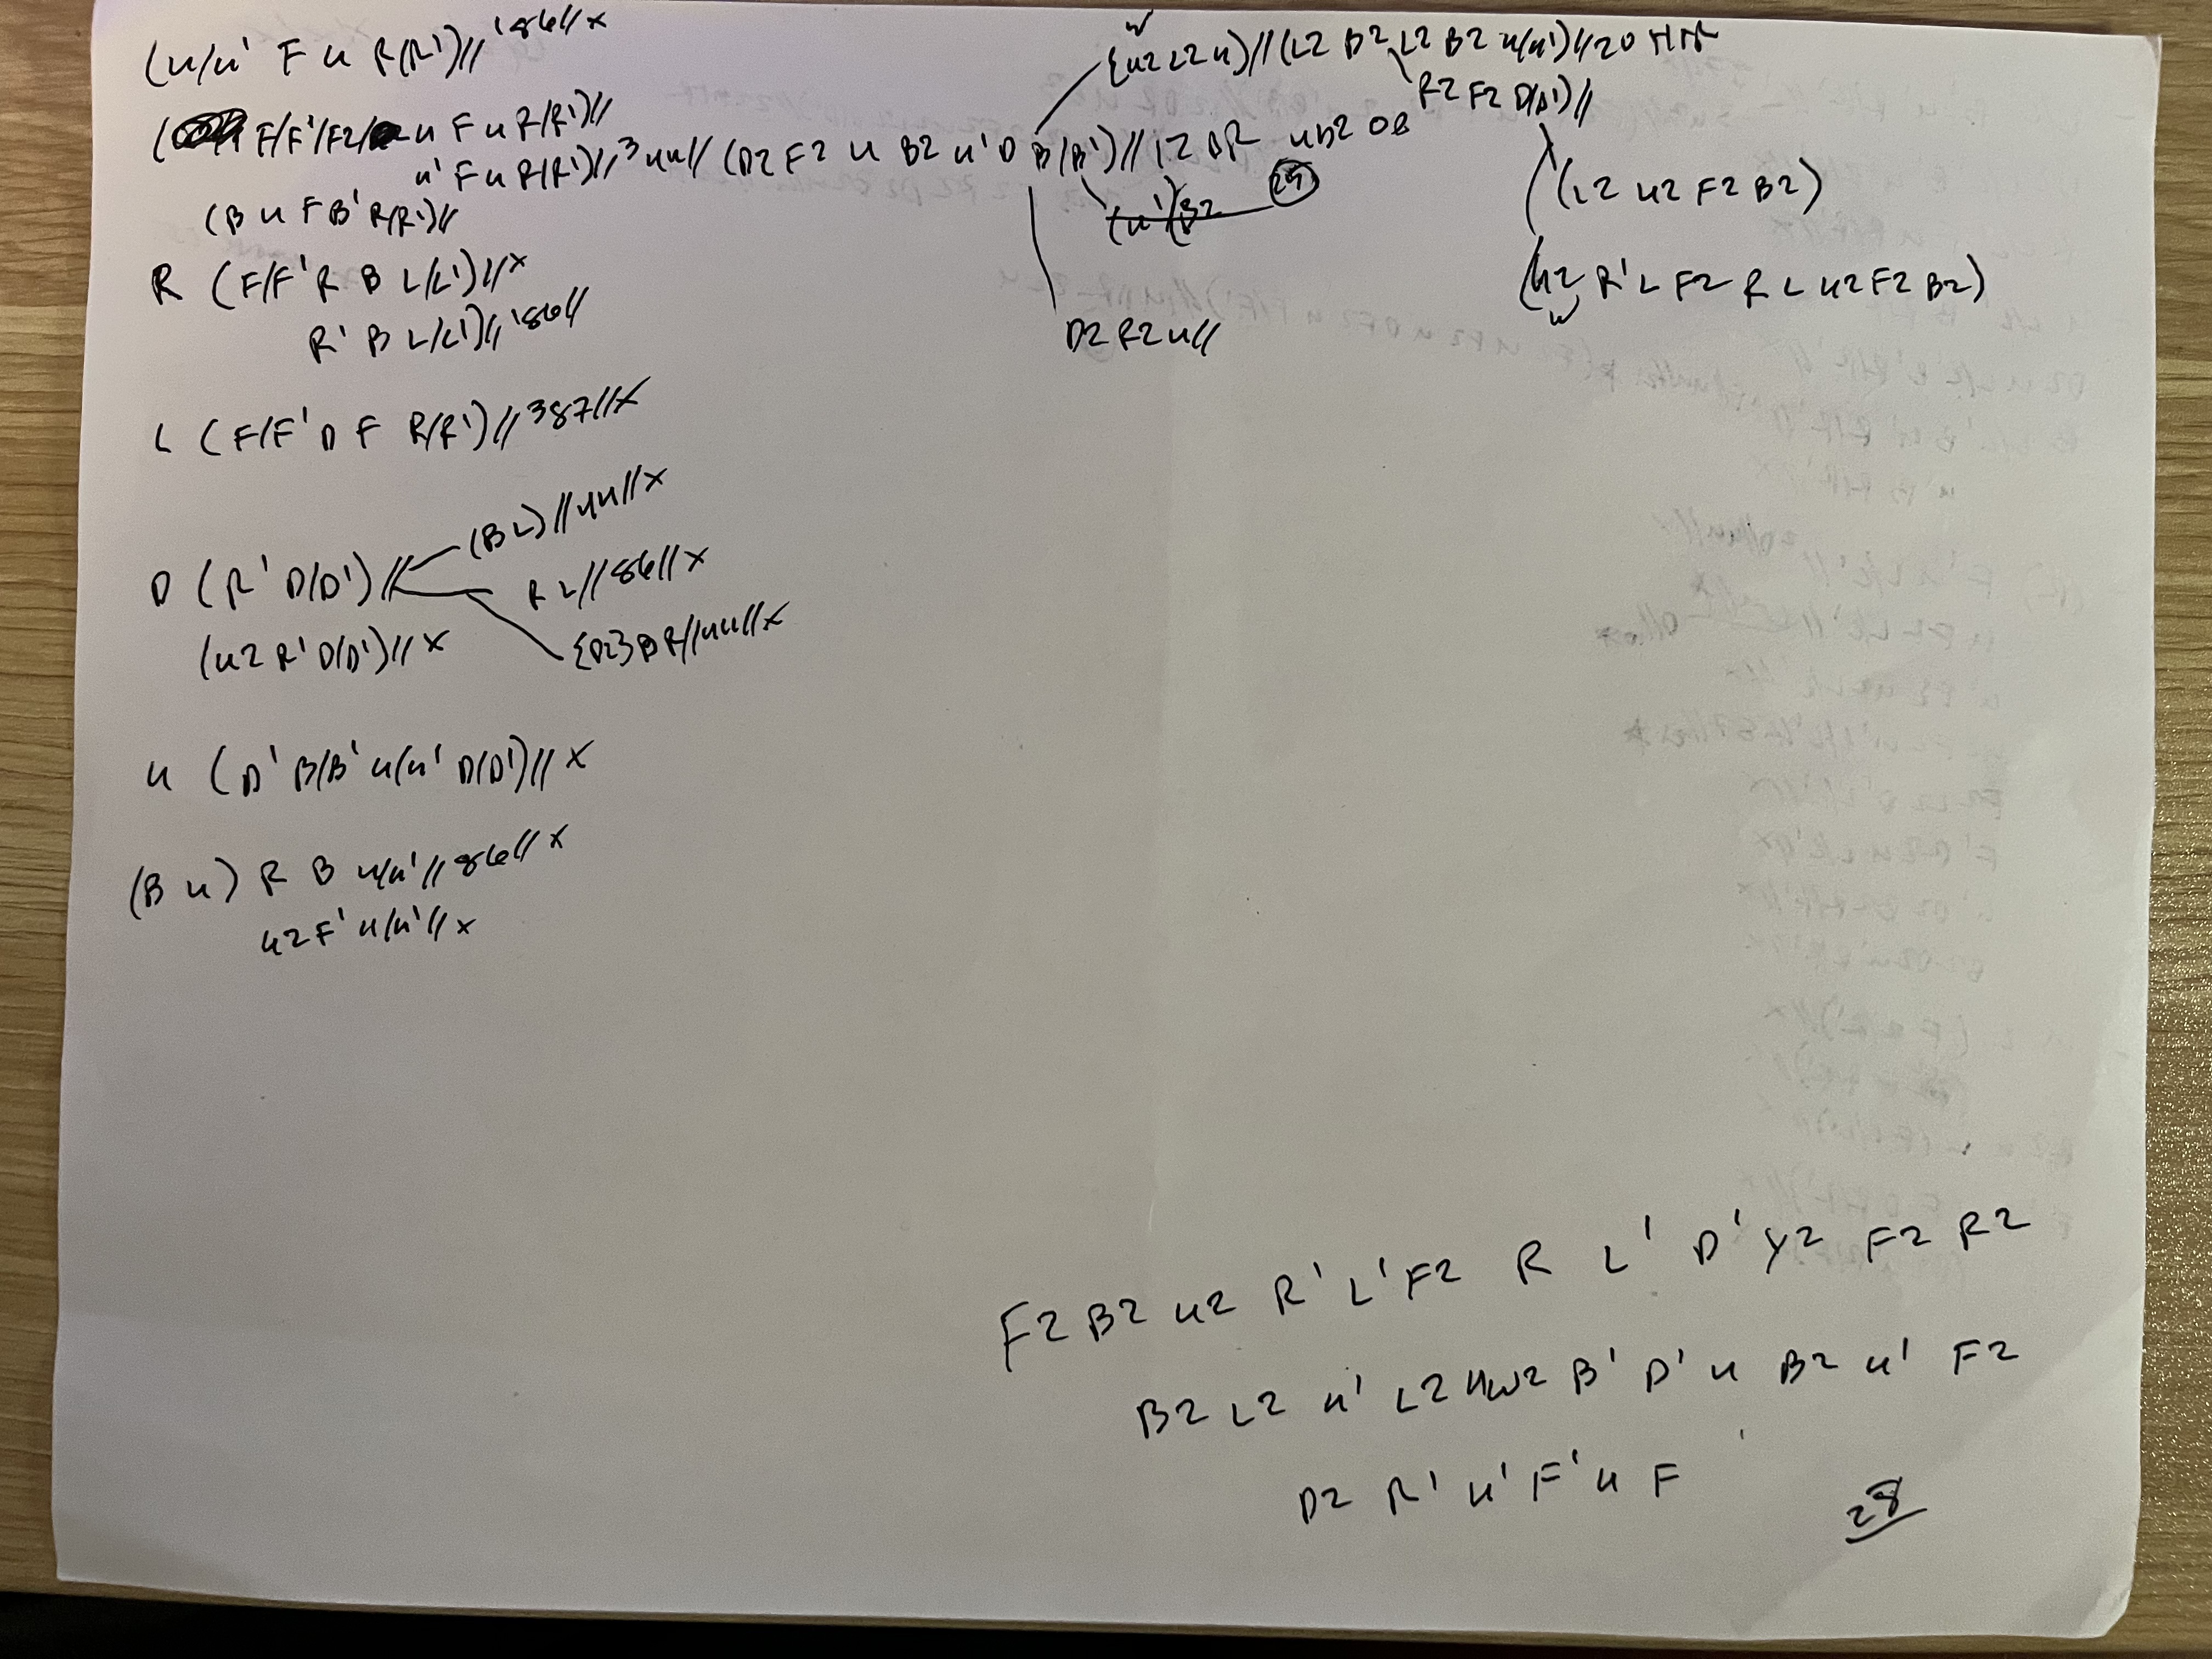 (u/u' F u R(R')// 186// x
{u2 L2 u)//(L2 B2 L2 B2 u(u')//20 HTR
w
R2 F2 D(D')//
( F/F'/F2/ u F u R(R')//
u' F u R(R')// 3 4u// (D2 F2 u B2 u' D B(B')// 12 DR 4b2 08
(u')(B2 29
(B u F B' R(R')//
(L2 u2 F2 B2)
R (F/F' R B L(L')// x
R' B L(L')// 186//
(u2 R' L F2 R L u2 F2 B2)
w
D2 R2 u//
L (F/F' D F R(R')// 387// x
(B L)//4u// x
D (R' D(D')// R L//86// x
(u2 R' D(D')// x {D2} B R//4u// x
u (D' B/B' u/u' D(D')// x
(B u) R B u/u'// 86// x
u2 F' u/u'// x
F2 B2 u2 R' L' F2 R L' D' y2 F2 R2
B2 L2 u' L2 uw2 B' D' u B2 u' F2
D2 R' u' F' u F
28